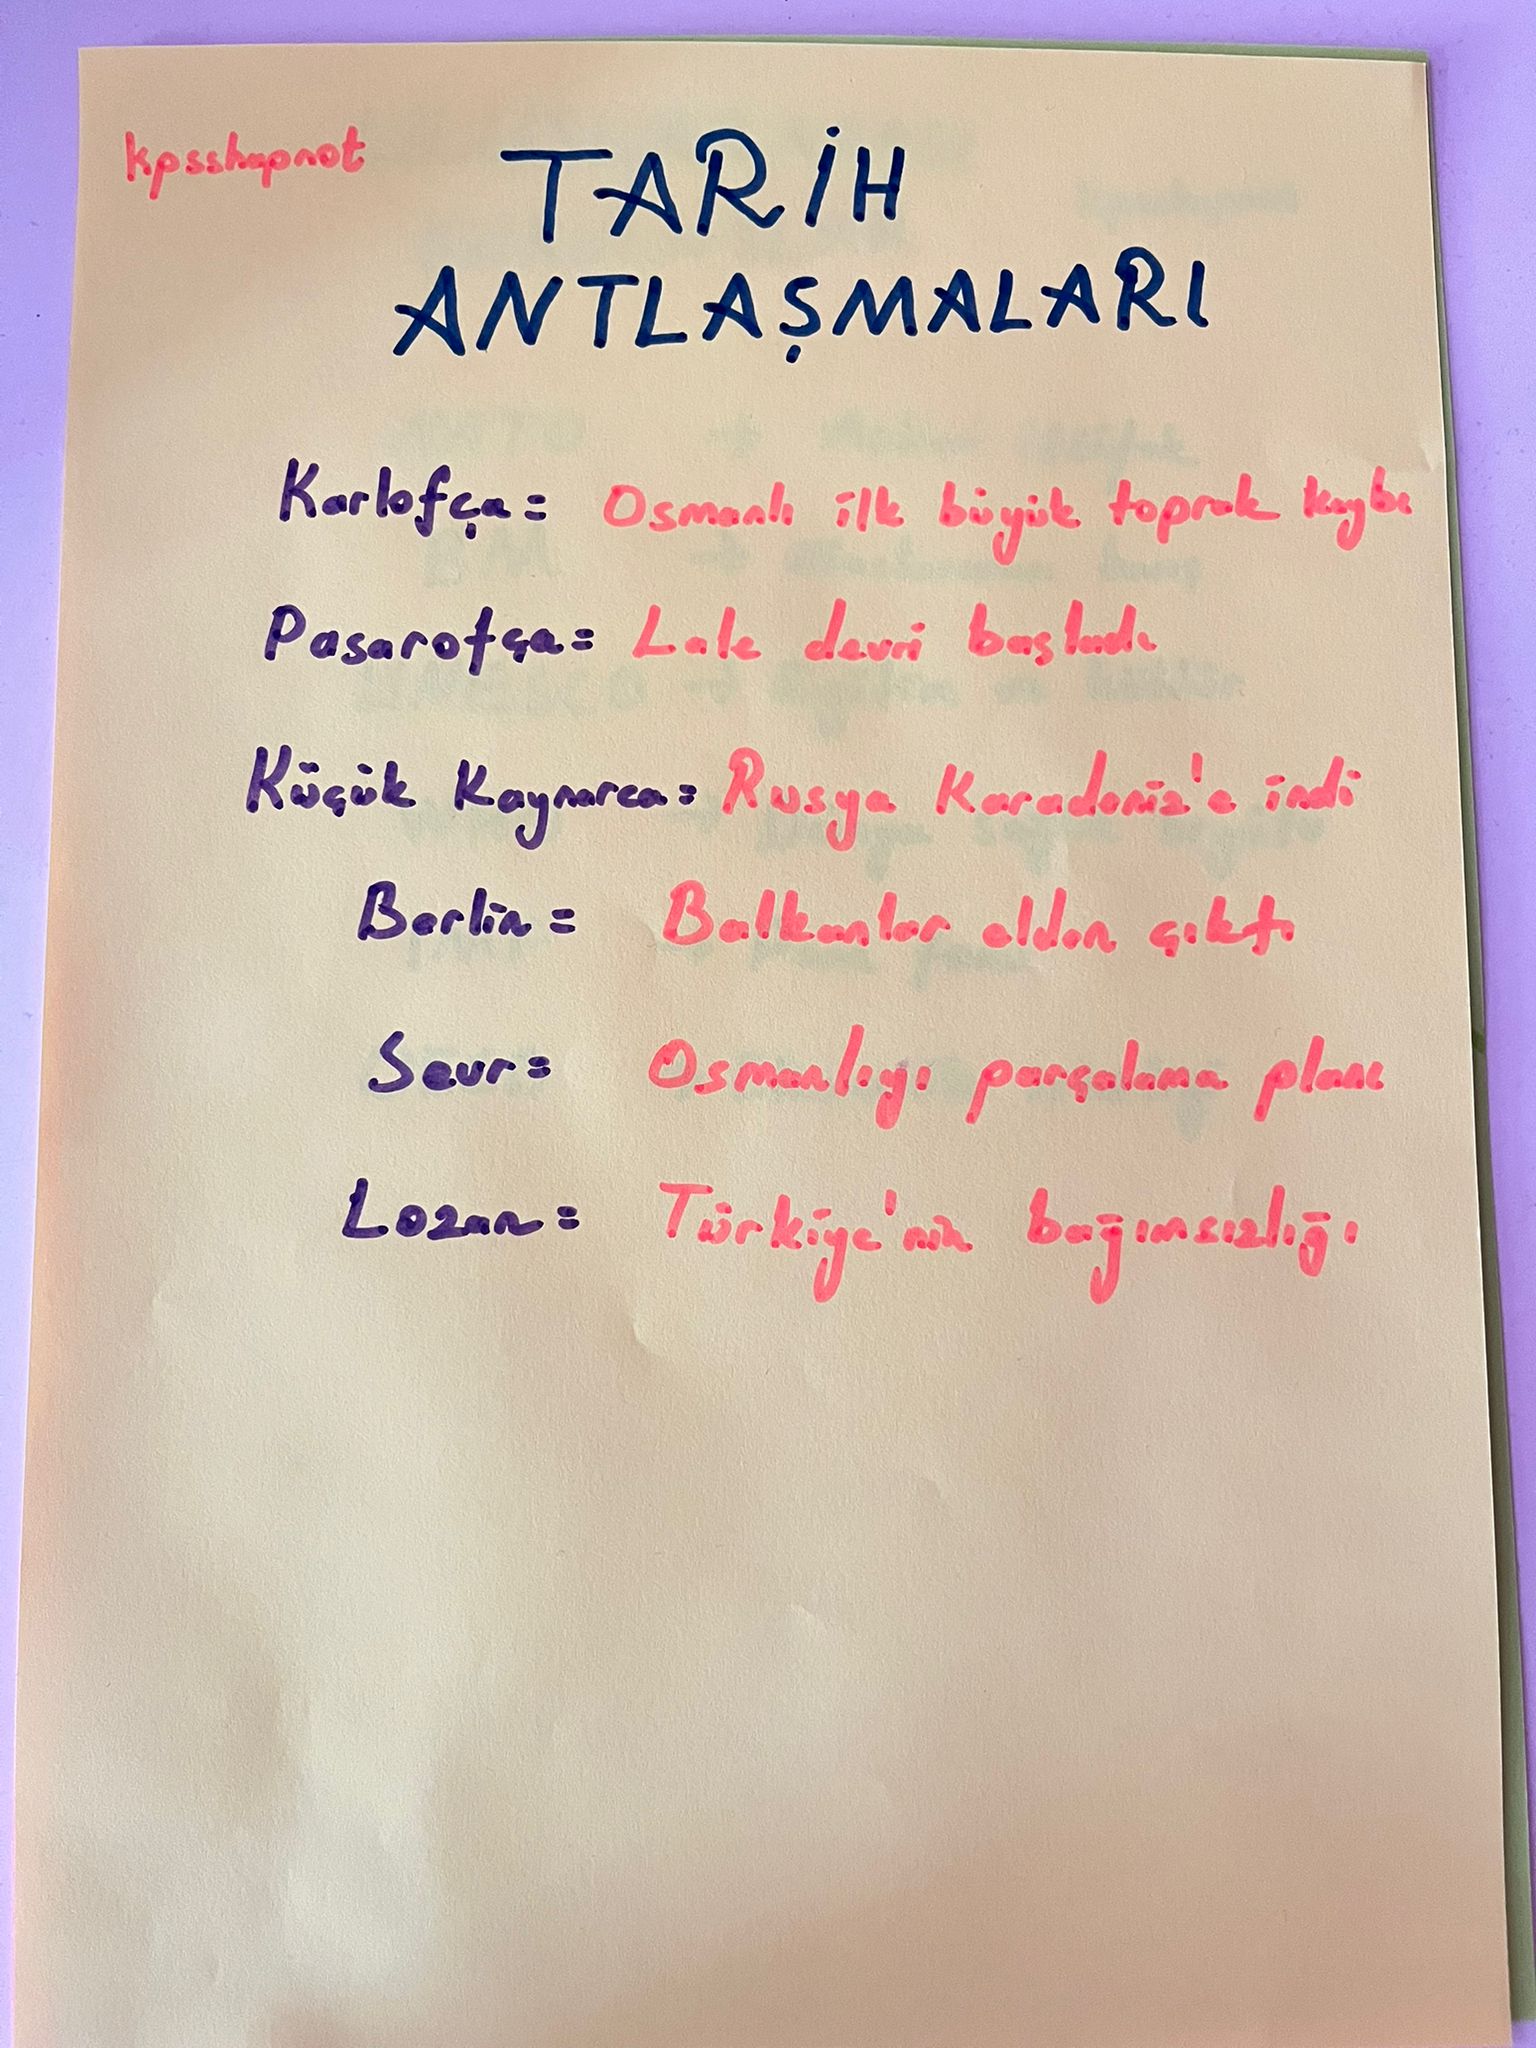 kpsshapnot
TARİH
ANTLAŞMALARI
Karlofça = Osmanlı ilk büyük toprak kaybı
Pasarofça = Lale devri başladı
Küçük Kaynarca = Rusya Karadeniz'e indi
Berlin = Balkanlar elden çıktı
Sevr = Osmanlıyı parçalama planı
Lozan = Türkiye'nin bağımsızlığı